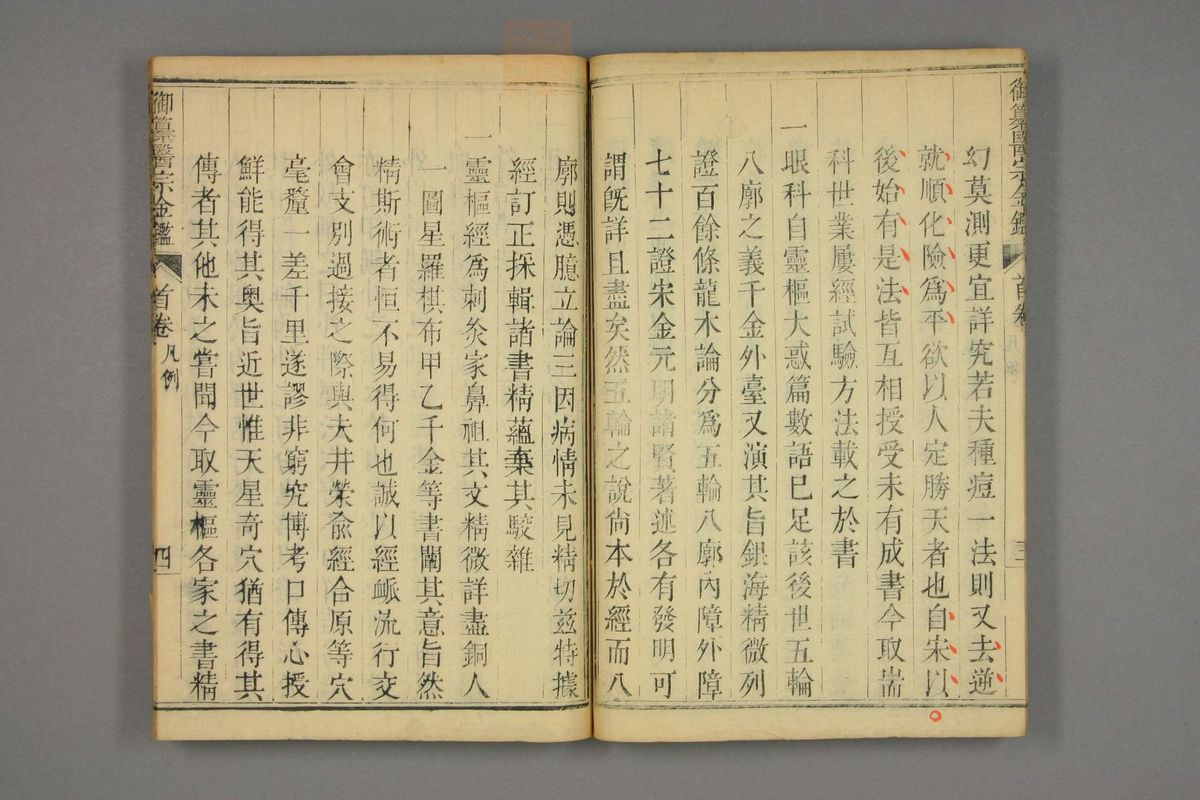 御纂醫宗金鑑
首卷
三
幻莫測更宜詳究若夫種痘一法則又去逆
就順化險爲平欲以人定勝天者也自宋以
後始有是法皆互相授受未有成書今取耑
科世業屢經試驗方法載之於書
一眼科自靈樞大惑篇數語已足該後世五輪
八廓之義千金外臺又演其旨銀海精微列
證百餘條龍木論分爲五輪八廓內障外障
七十二證宋金元明諸賢著述各有發明可
謂旣詳且盡矣然五輪之說尙本於經而八
廓則憑臆立論三因病情未見精切茲特據
經訂正採輯諸書精蘊棄其駁雜
一靈樞經爲刺灸家鼻祖其文精微詳盡銅人
一圖星羅棋布甲乙千金等書闡其意旨然
精斯術者恒不易得何也誠以經衇流行交
會支別過接之際與夫井滎俞經合原等穴
毫釐一差千里遂謬非窮究博考口傳心授
鮮能得其奧旨近世惟天星奇穴猶有得其
傳者其他未之嘗聞今取靈樞各家之書精
御纂醫宗金鑑
首卷
凡例
四